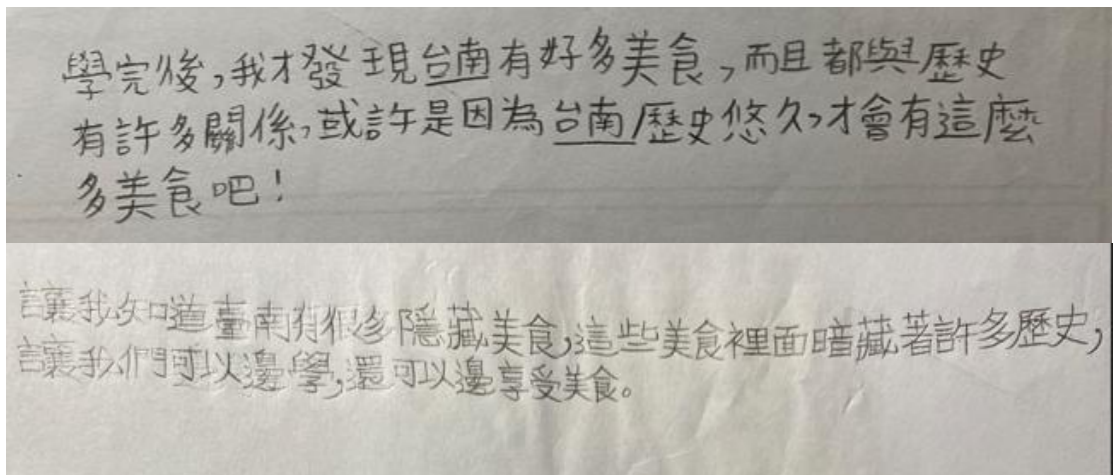 學完後,我才發現台南有好多美食,而且都與歷史
有許多關係,或許是因為台南歷史悠久,才會有這麼
多美食吧!
讓我知道臺南有很多隱藏美食,這些美食裡面暗藏著許多歷史,
讓我們可以邊學,還可以邊享受美食。